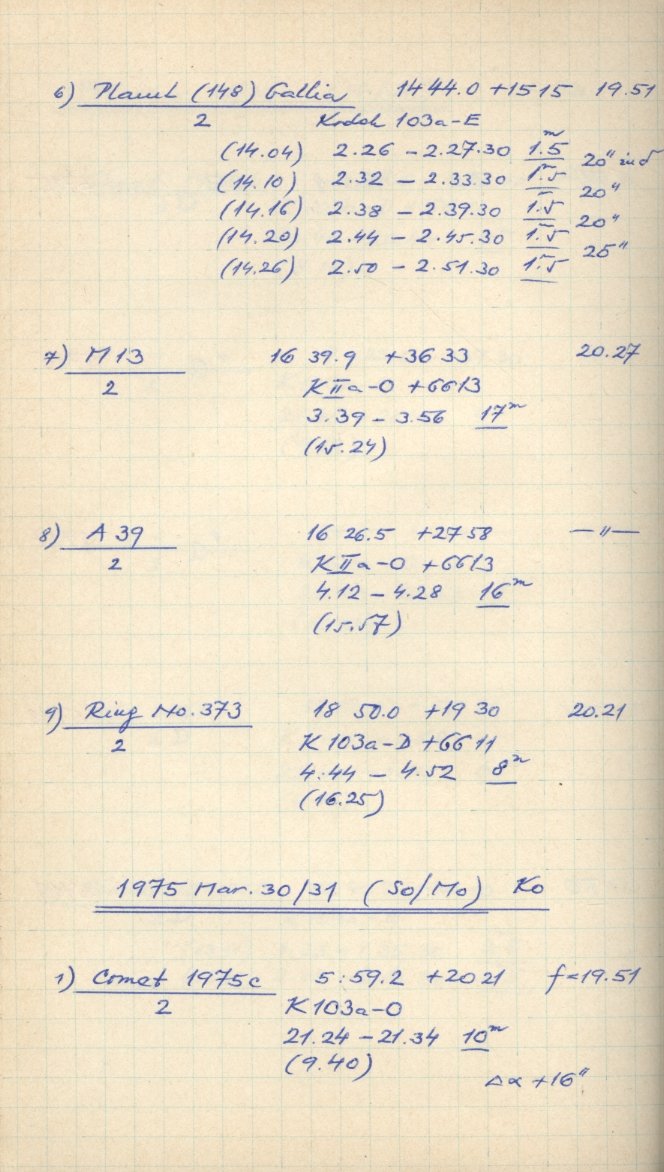 6) Planet (148) Gallia 1444.0 +1515 19.51
2 Kodak 103a-E
(14.04) 2.26 - 2.27.30 1.5m 20" in δ
(14.10) 2.32 - 2.33.30 1.5 20"
(14.16) 2.38 - 2.39.30 1.5 20"
(14.20) 2.44 - 2.45.30 1.5 25"
(14.26) 2.50 - 2.51.30 1.5
7) M13 16 39.9 +36 33 20.27
2 KIIa-O +GG13
3.39 - 3.56 17m
(15.24)
8) A 39 16 26.5 +27 58 — " —
2 KIIa-O +GG13
4.12 - 4.28 16m
(15.57)
9) Ring No. 373 18 50.0 +19 30 20.21
2 K 103a-D +GG11
4.44 - 4.52 8m
(16.25)
1975 Mar. 30/31 (So/Mo) Ko
1) Comet 1975c 5:59.2 +20 21 f=19.51
2 K103a-O
21.24 - 21.34 10m
(9.40)
Δα +16"